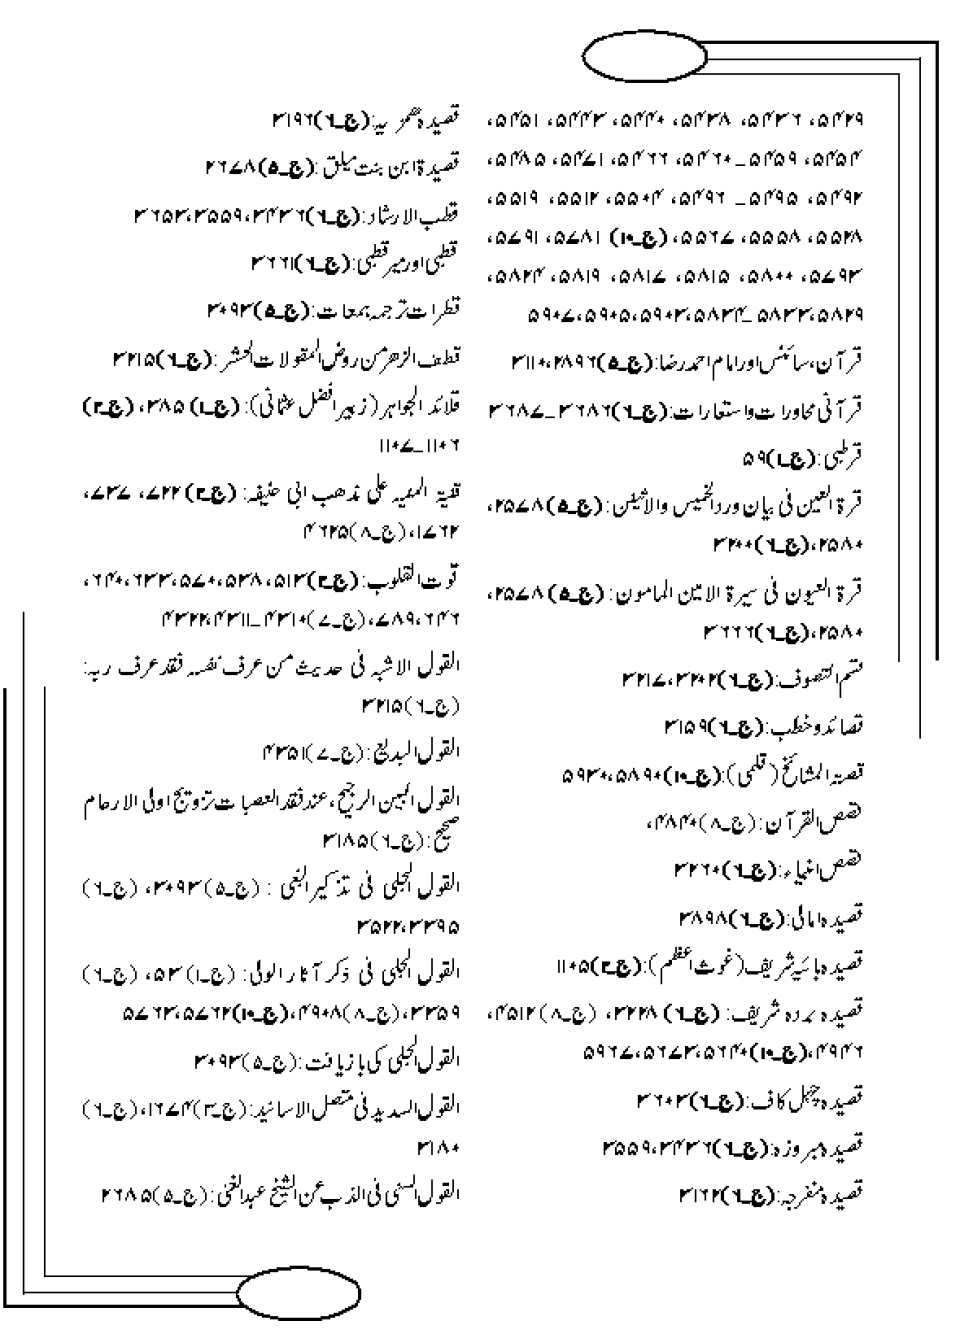 ۵۴۲۹، ۵۴۳۶، ۵۴۳۸، ۵۴۴۰، ۵۴۴۳، ۵۴۵۱،
۵۴۵۴، ۵۴۵۹ _ ۵۴۶۰، ۵۴۶۶، ۵۴۷۱، ۵۴۸۵،
۵۴۹۲، ۵۴۹۵ _ ۵۴۹۶، ۵۵۰۴، ۵۵۱۲، ۵۵۱۹،
۵۵۲۸، ۵۵۵۸، ۵۵۶۷، (ج_۱۰) ۵۷۸۱، ۵۷۹۱،
۵۷۹۳، ۵۸۰۰، ۵۸۱۵، ۵۸۱۷، ۵۸۱۹، ۵۸۲۴،
۵۸۲۹، ۵۸۳۳_۵۸۳۴، ۵۹۰۳، ۵۹۰۵، ۵۹۰۷
قرآن، سائنس اور امام احمد رضا: (ج_۵)۲۸۹۶، ۳۱۱۰
قرآنی محاورات واستعارات: (ج_۶)۳۶۸۶_۳۶۸۷
قرطبی: (ج_۱)۵۹
قرۃ العین فی بیان ورد الخمیس والاثنین: (ج_۵)۲۵۷۸،
۲۵۸۰، (ج_۶)۳۲۰۰
قرۃ العیون فی سیرۃ الامین المامون: (ج_۵)۲۵۷۸،
۲۵۸۰، (ج_۶)۳۶۶۶
قسم التصوف: (ج_۶)۳۲۰۲، ۳۲۱۷
قصائد وخطب: (ج_۶)۳۱۵۹
قصیۃ المشائخ (قلمی): (ج_۱۰)۵۸۹۰، ۵۹۳۰
قصص القرآن: (ج_۸)۴۸۴۰،
قصص انبیاء: (ج_۶)۳۲۶۰
قصیدہ امالی: (ج_۶)۳۸۹۸
قصیدہ بائیہ شریف (غوث اعظم): (ج_۳)۱۱۰۵
قصیدہ بردہ شریف: (ج_۶) ۳۲۲۸، (ج_۸) ۴۵۱۲،
۴۹۴۶، (ج_۱۰)۵۶۴۰، ۵۶۷۳، ۵۹۶۷
قصیدہ چہل کاف: (ج_۶)۳۶۰۳
قصیدہ مہروزہ: (ج_۶)۳۴۳۶، ۳۵۵۹
قصیدہ منفرجہ: (ج_۶)۳۱۶۲
قصیدہ ھمزیہ: (ج_۶)۳۱۹۶
قصیدۃ ابن بنت میلق: (ج_۵)۲۶۷۸
قطب الارشاد: (ج_۶)۳۴۳۶، ۳۵۵۹، ۳۶۵۳
قطبی اور میر قطبی: (ج_۶)۳۶۶۱
قطرات ترجمہ ہمعات: (ج_۵)۳۰۹۳
قطف الزھر من روض المقولات العشر: (ج_۶)۳۲۱۵
قلائد الجواہر (زبیر افضل عثمانی): (ج_۱) ۳۸۵، (ج_۳)
۱۱۰۶_۱۱۰۷
قنیۃ المنیہ علی مذھب ابی حنیفہ: (ج_۳) ۷۲۲، ۷۳۷،
۱۷۶۲، (ج_۸) ۴۶۲۵
قوت القلوب: (ج_۳)۵۱۳، ۵۳۸، ۵۷۰، ۶۳۳، ۶۴۰،
۶۴۶، ۷۸۹، (ج_۷)۴۳۱۰_۴۳۱۱، ۴۳۲۲
القول الاشبہ فی حدیث من عرف نفسہ فقد عرف ربہ:
(ج_۶) ۳۲۱۵
القول البدیع: (ج_۷) ۴۳۵۱
القول المبین الرجیح، عند فقد العصبات تزویج اولی الارحام
صحیح: (ج_۶) ۳۱۸۵
القول الجلی فی تذکیر الغبی : (ج_۵) ۳۰۹۳، (ج_۶)
۳۳۹۵، ۳۵۲۲
القول الجلی فی ذکر آثار الولی: (ج_۱) ۵۳، (ج_۶)
۳۳۵۹، (ج_۸)۴۹۰۸، (ج_۱۰)۵۷۶۲، ۵۷۶۳
القول الجلی کی بازیافت: (ج_۵)۳۰۹۳
القول السدید فی متصل الاسانید: (ج_۳)۱۶۷۴، (ج_۶)
۳۱۸۰
القول السنی فی الذب عن الشیخ عبدالغنی: (ج_۵)۲۶۸۵